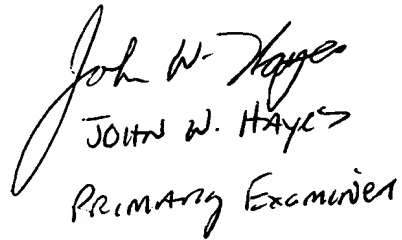 John W. Hayes
JOHN W. HAYES
PRIMARY EXAMINER